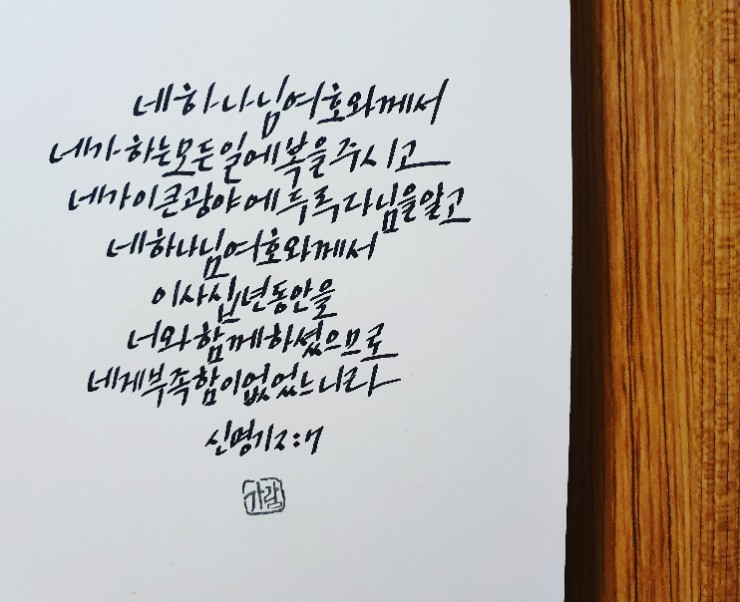 네 하나님 여호와께서
네가 하는 모든 일에 복을 주시고
네가 이 큰 광야에 두루 다님을 알고
네 하나님 여호와께서
이 사십 년 동안을
너와 함께 하셨으므로
네게 부족함이 없었느니라
신명기 2:7
가람